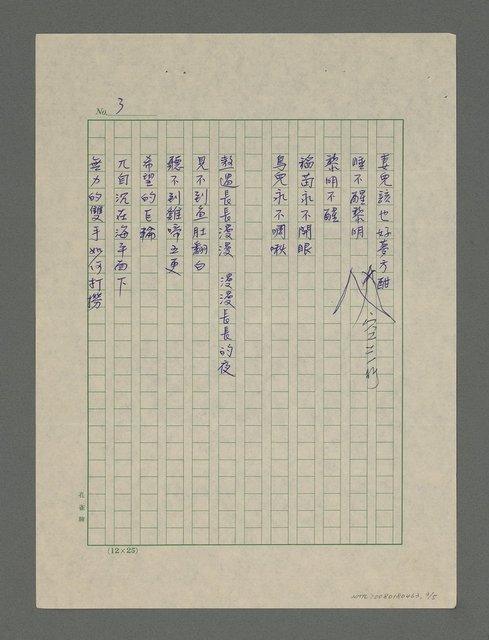 No. 3
妻兒該也好夢方酣
睡不醒黎明
黎明不醒
稻苗永不開眼
鳥兒永不啁啾
熬過長長漫漫 漫漫長長的夜
見不到魚肚翻白
聽不到雞啼五更
希望的巨輪
兀自沉在海平面下
無力的雙手如何打撈
空三行
孔雀牌
(12×25)